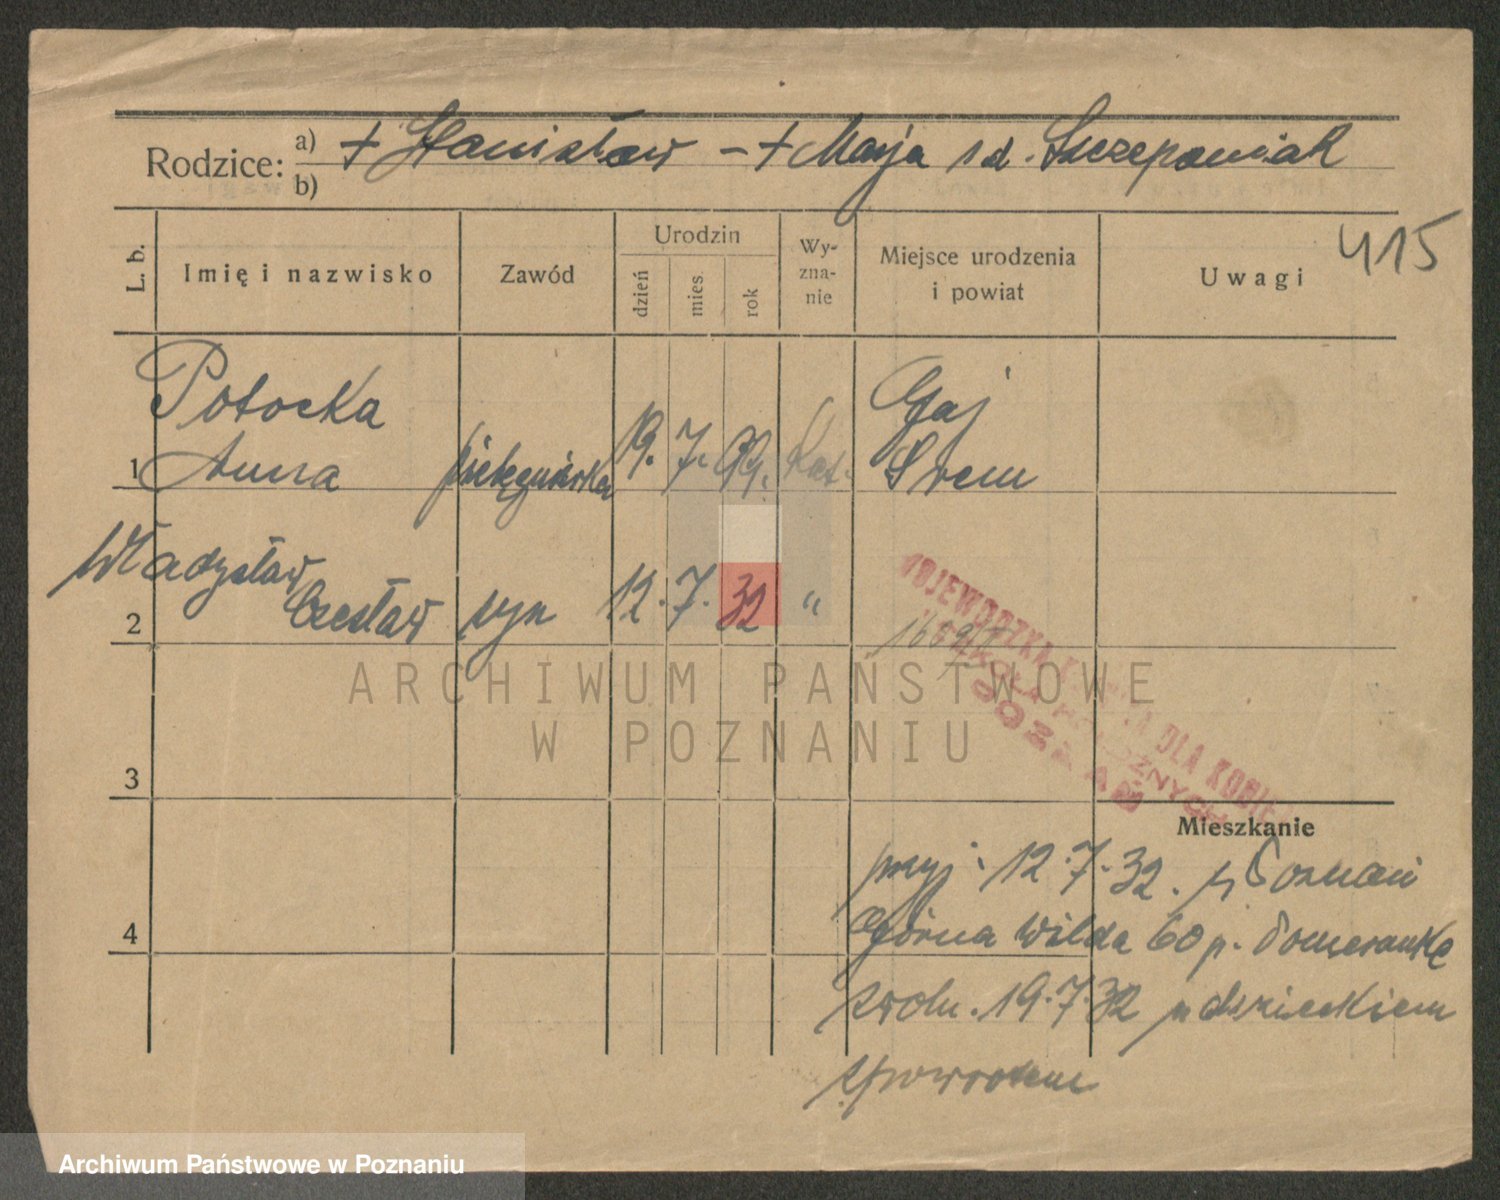 Rodzice: a) + Stanisław – + Marja z d. Szczepaniak
b)
415
L. b.
Imię i nazwisko
Zawód
Urodzin
dzień
mies.
rok
Wy-
zna-
nie
Miejsce urodzenia
i powiat
Uwagi
Potocka
Anna
1
pielęgniarka
19. 7. 99.
Kat.
Gaj
Śrem
Władysław
Czesław
2
syn
12. 7. 32
"
WOJEWÓDZKA
DLA KOBIE
POZNAŃ
ARCHIWUM PAŃSTWOWE
W POZNANIU
3
Mieszkanie
przyj. 12.7.32. z Poznani
4
Górna Wilda 60 p.
zwoln. 19.7.32 z dzieckiem
zpowrotem
Archiwum Państwowe w Poznaniu